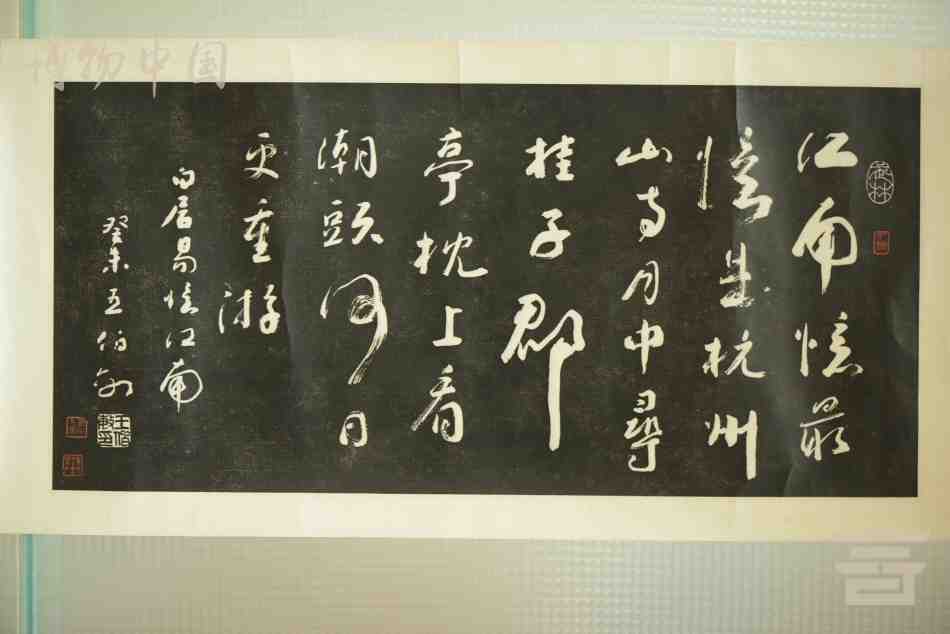 江南憶最
憶是杭州
山寺月中尋
桂子郡
亭枕上看
潮頭何日
更重游
白居易憶江南
癸未王伯敏
王伯敏印
博物中国